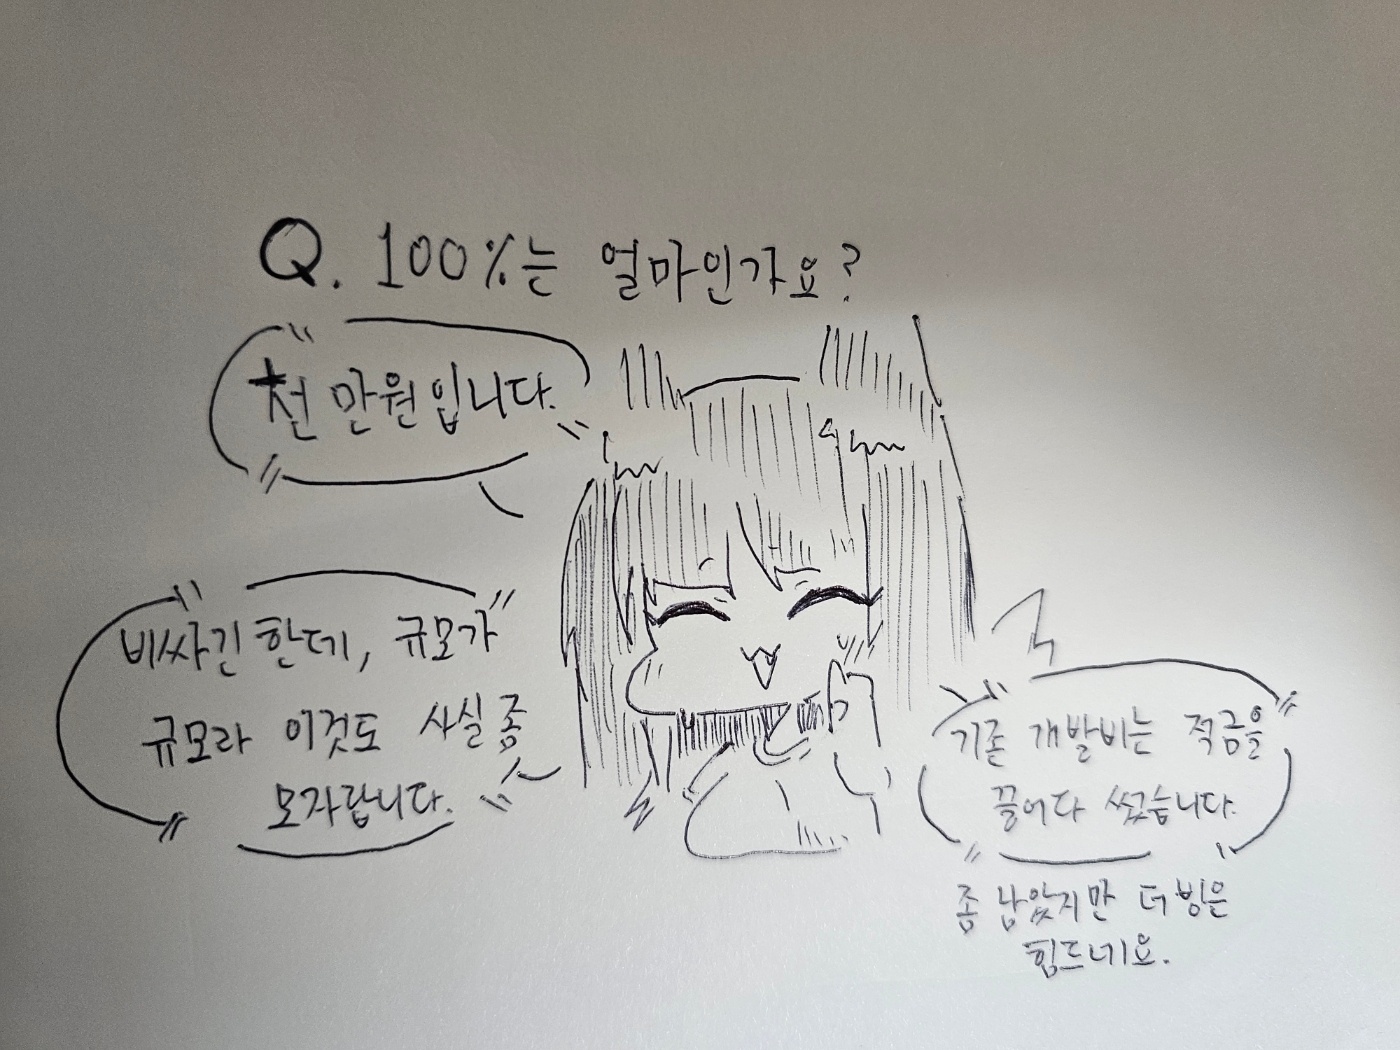 Q. 100%는 얼마인가요?
천 만원입니다.
비싸긴 한데, 규모가
규모라 이것도 사실 좀
모자랍니다.
기존 개발비는 적금을
끌어다 썼습니다.
좀 남았지만 더빙은
힘드네요.